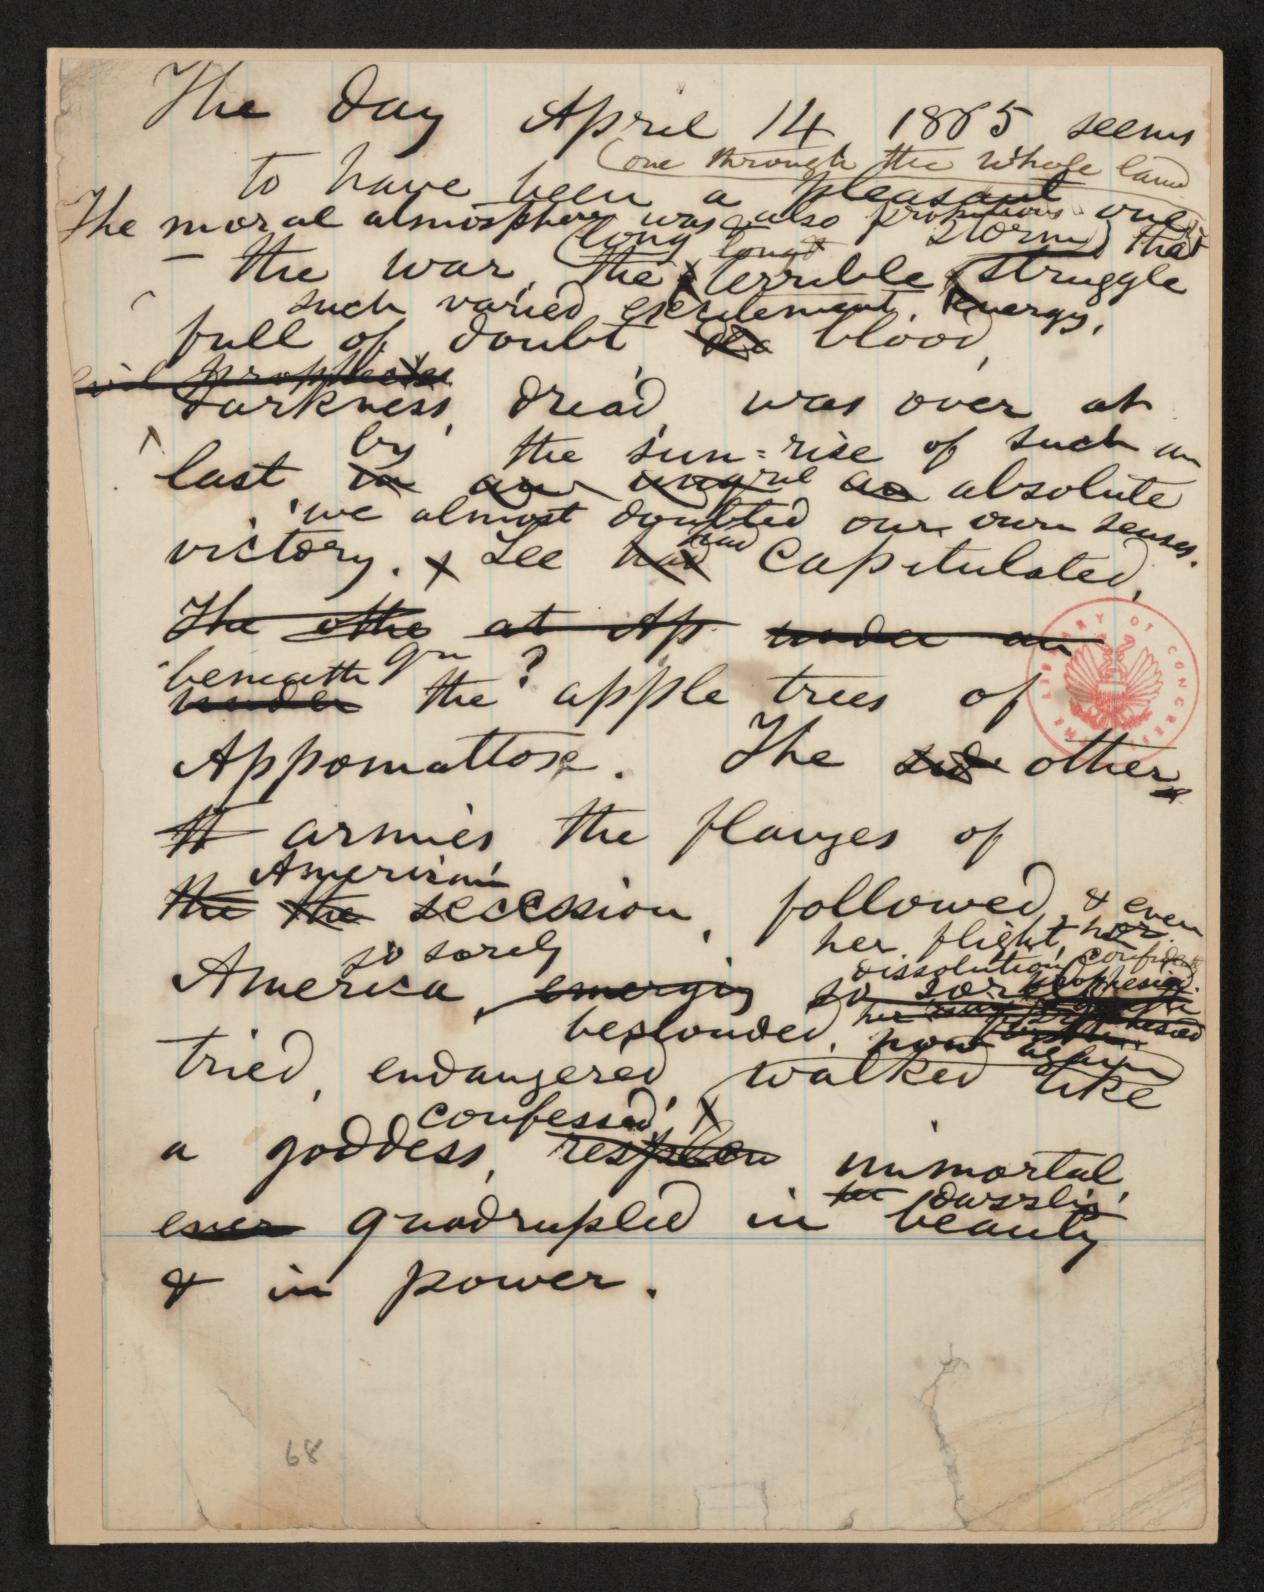 The day April 14 1865 seems
(one through the whole land
to have been a pleasant one
The moral atmosphere was also propitious
(long storm) the
– the war, the terrible struggle
such varied excitement, energy,
full of doubt blood,
evil prophecies
darkness, dread, was over at
by the sun-rise of such an
last, in an absolute
we almost doubted our own senses.
victory. x Lee had had capitulated,
The othe at Ap under an
beneath qu ?
under the apple trees of
Appomattox. The other
armies the flanges of
American
the the secession, followed & even
so sorely her flight, her
dissolution, confidently
America, emerging so sor
beclouded, now again
tried, endangered, walked like
confessed, x
a goddess, resplen immortal
her dazzling
ever quadrupled in beauty
& in power.
THE LIBRARY OF CONGRESS
68